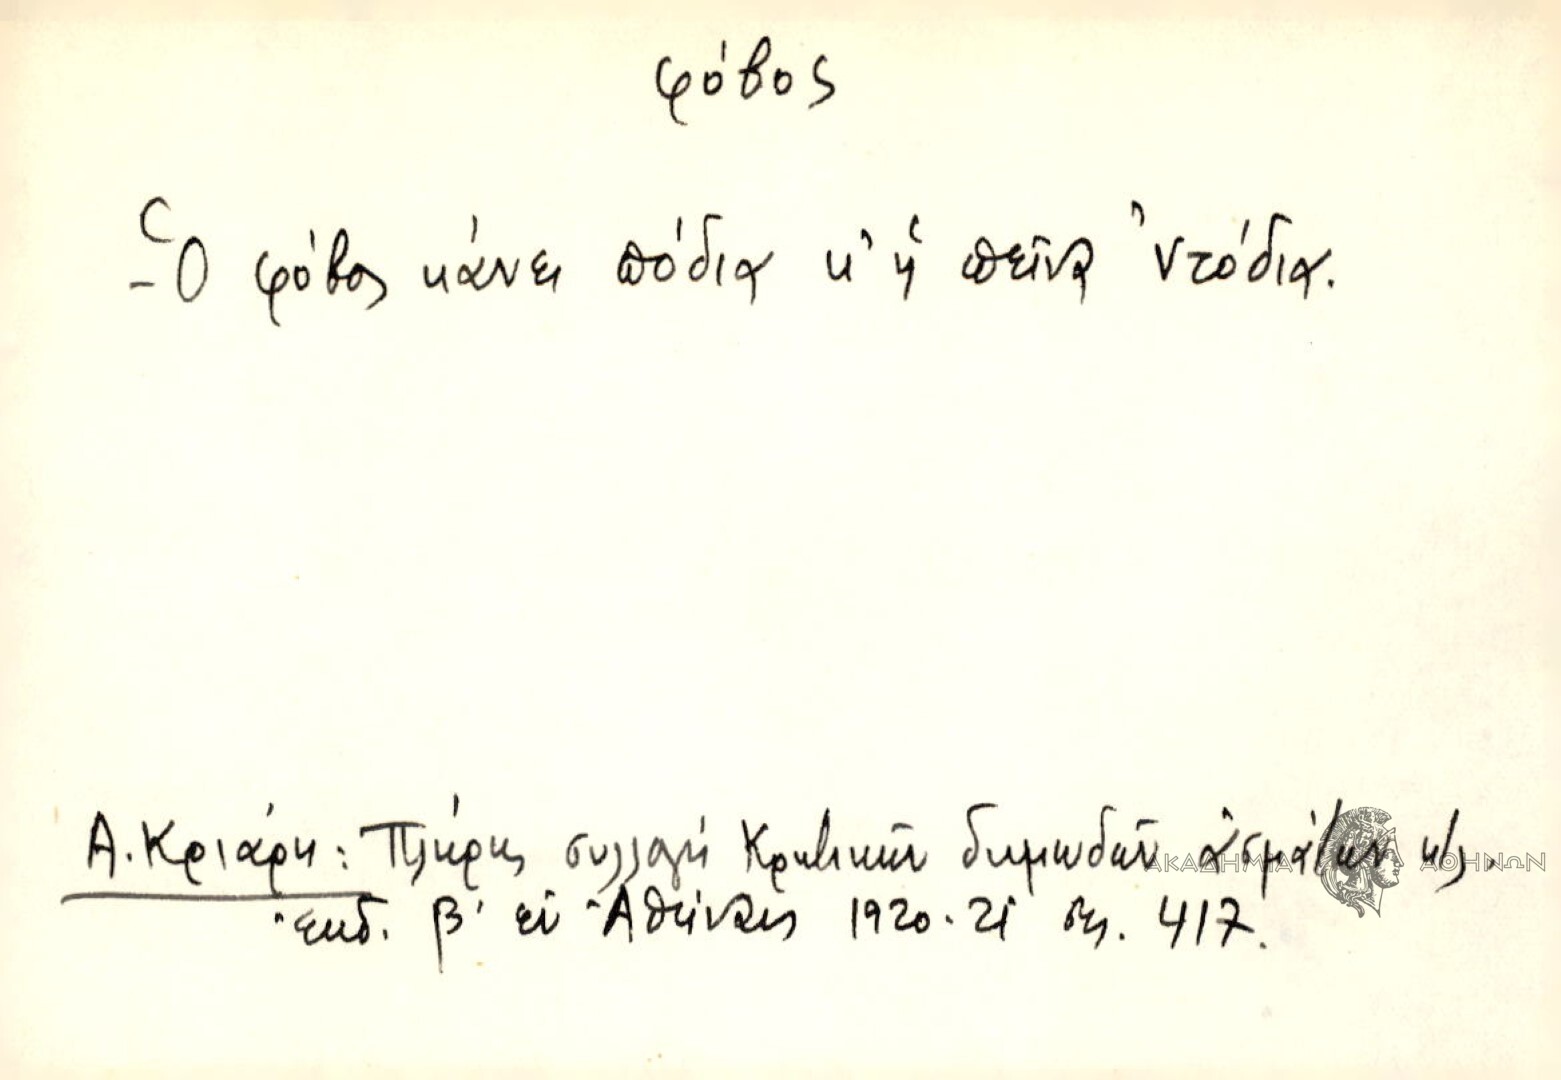 φόβος
-Ὁ φόβος κάνει πόδια κ' ἡ πεῖνα 'ντόδια.
Α. Κριάρη: Πλήρης συλλογή Κρητικῶν δημωδῶν ἀσμάτων κ/λ.
ἔκδ. β' ἐν Ἀθήναις 1920-21 σελ. 417.
ΑΚΑΔΗΜΙΑ ΑΘΗΝΩΝ